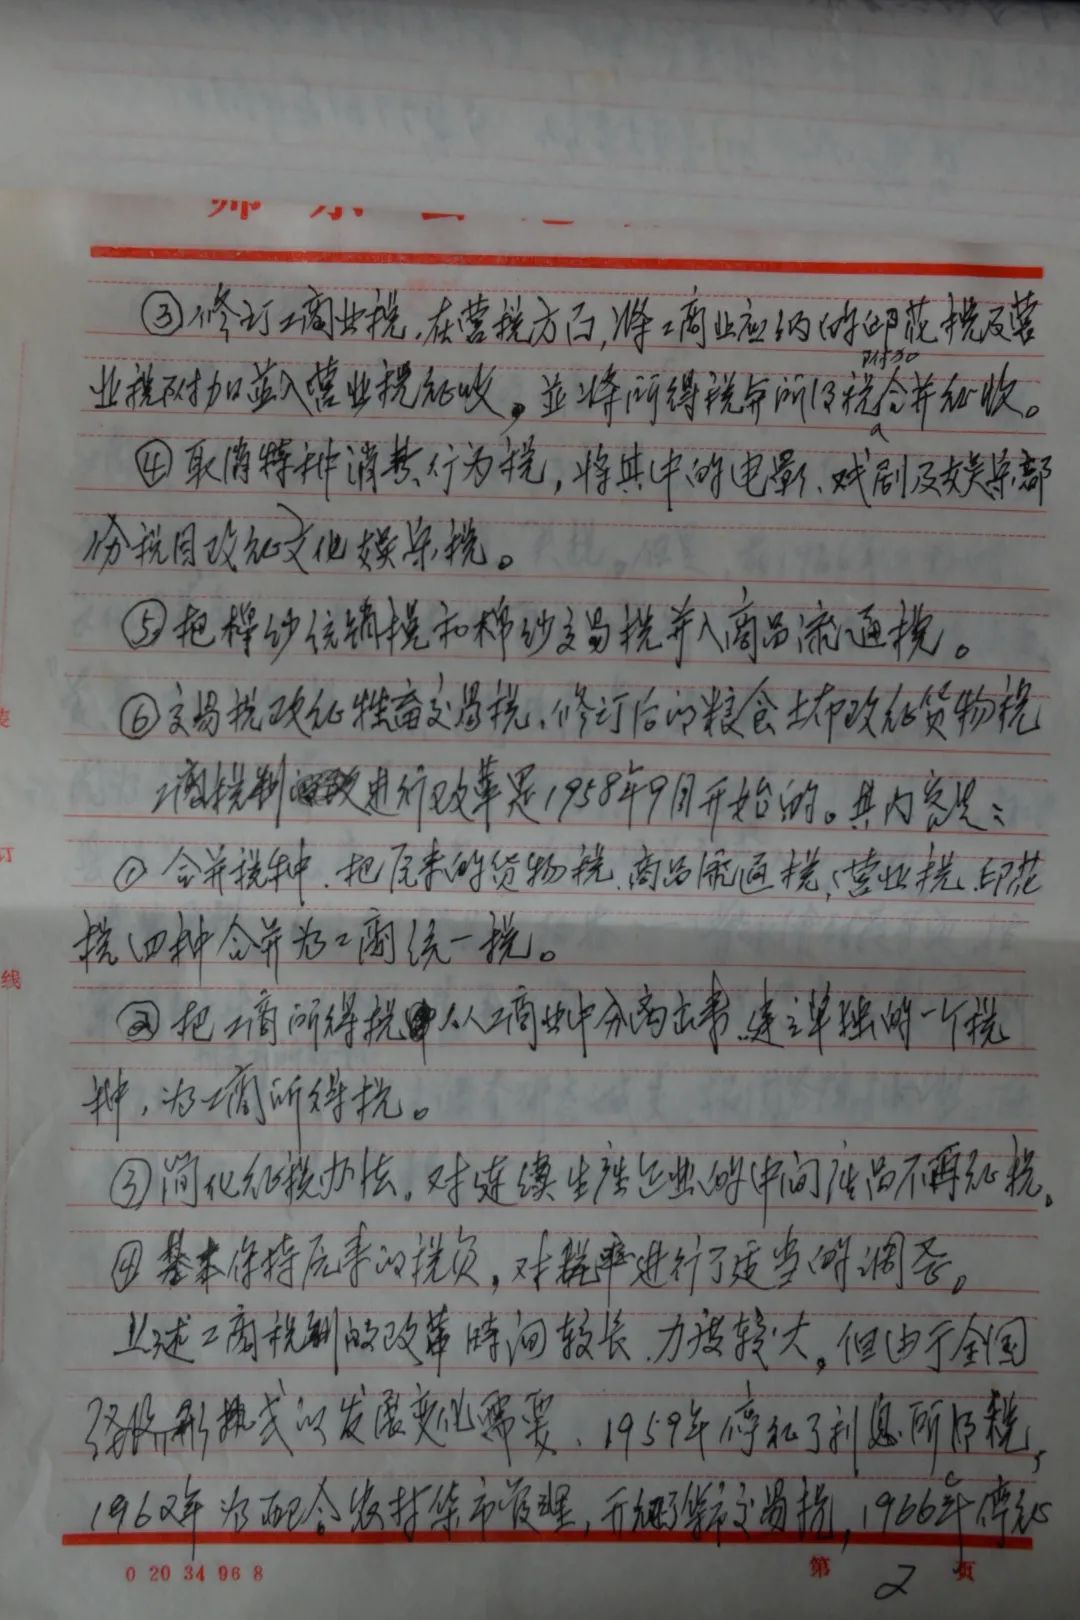 ③修订工商业税.在营税方面,将工商业应纳的印花税及营
附加
业税附加并入营业税征收,並将所得税与所得税合并征收。
④取消特种消费行为税,将其中的电影、戏剧及娱乐部
份税目改征文化娱乐税。
⑤把棉纱统销税和棉纱交易税并入商品流通税。
⑥交易税改征牲畜交易税、修订后的粮食土布改征货物税
工商税制进行改革是1958年9月开始的。其内容是:
①合并税种.把原来的货物税、商品流通税、营业税、印花
税四种合并为工商统一税。
②把工商所得税从工商业中分离出来、建立单独的一个税
种,为工商所得税。
③简化征税办法。对连续生产企业的中间产品不再征税。
④基本保持原来的税负,对税率进行了适当的调整。
上述工商税制的改革时间较长、力度较大。但由于全国
形式的发展变化需要、1959年停征了利息所得税,
1962年为配合农村集市管理,开征了集市交易税,1966年停征
装
订
线
0 20 34 96 8
第 2 页